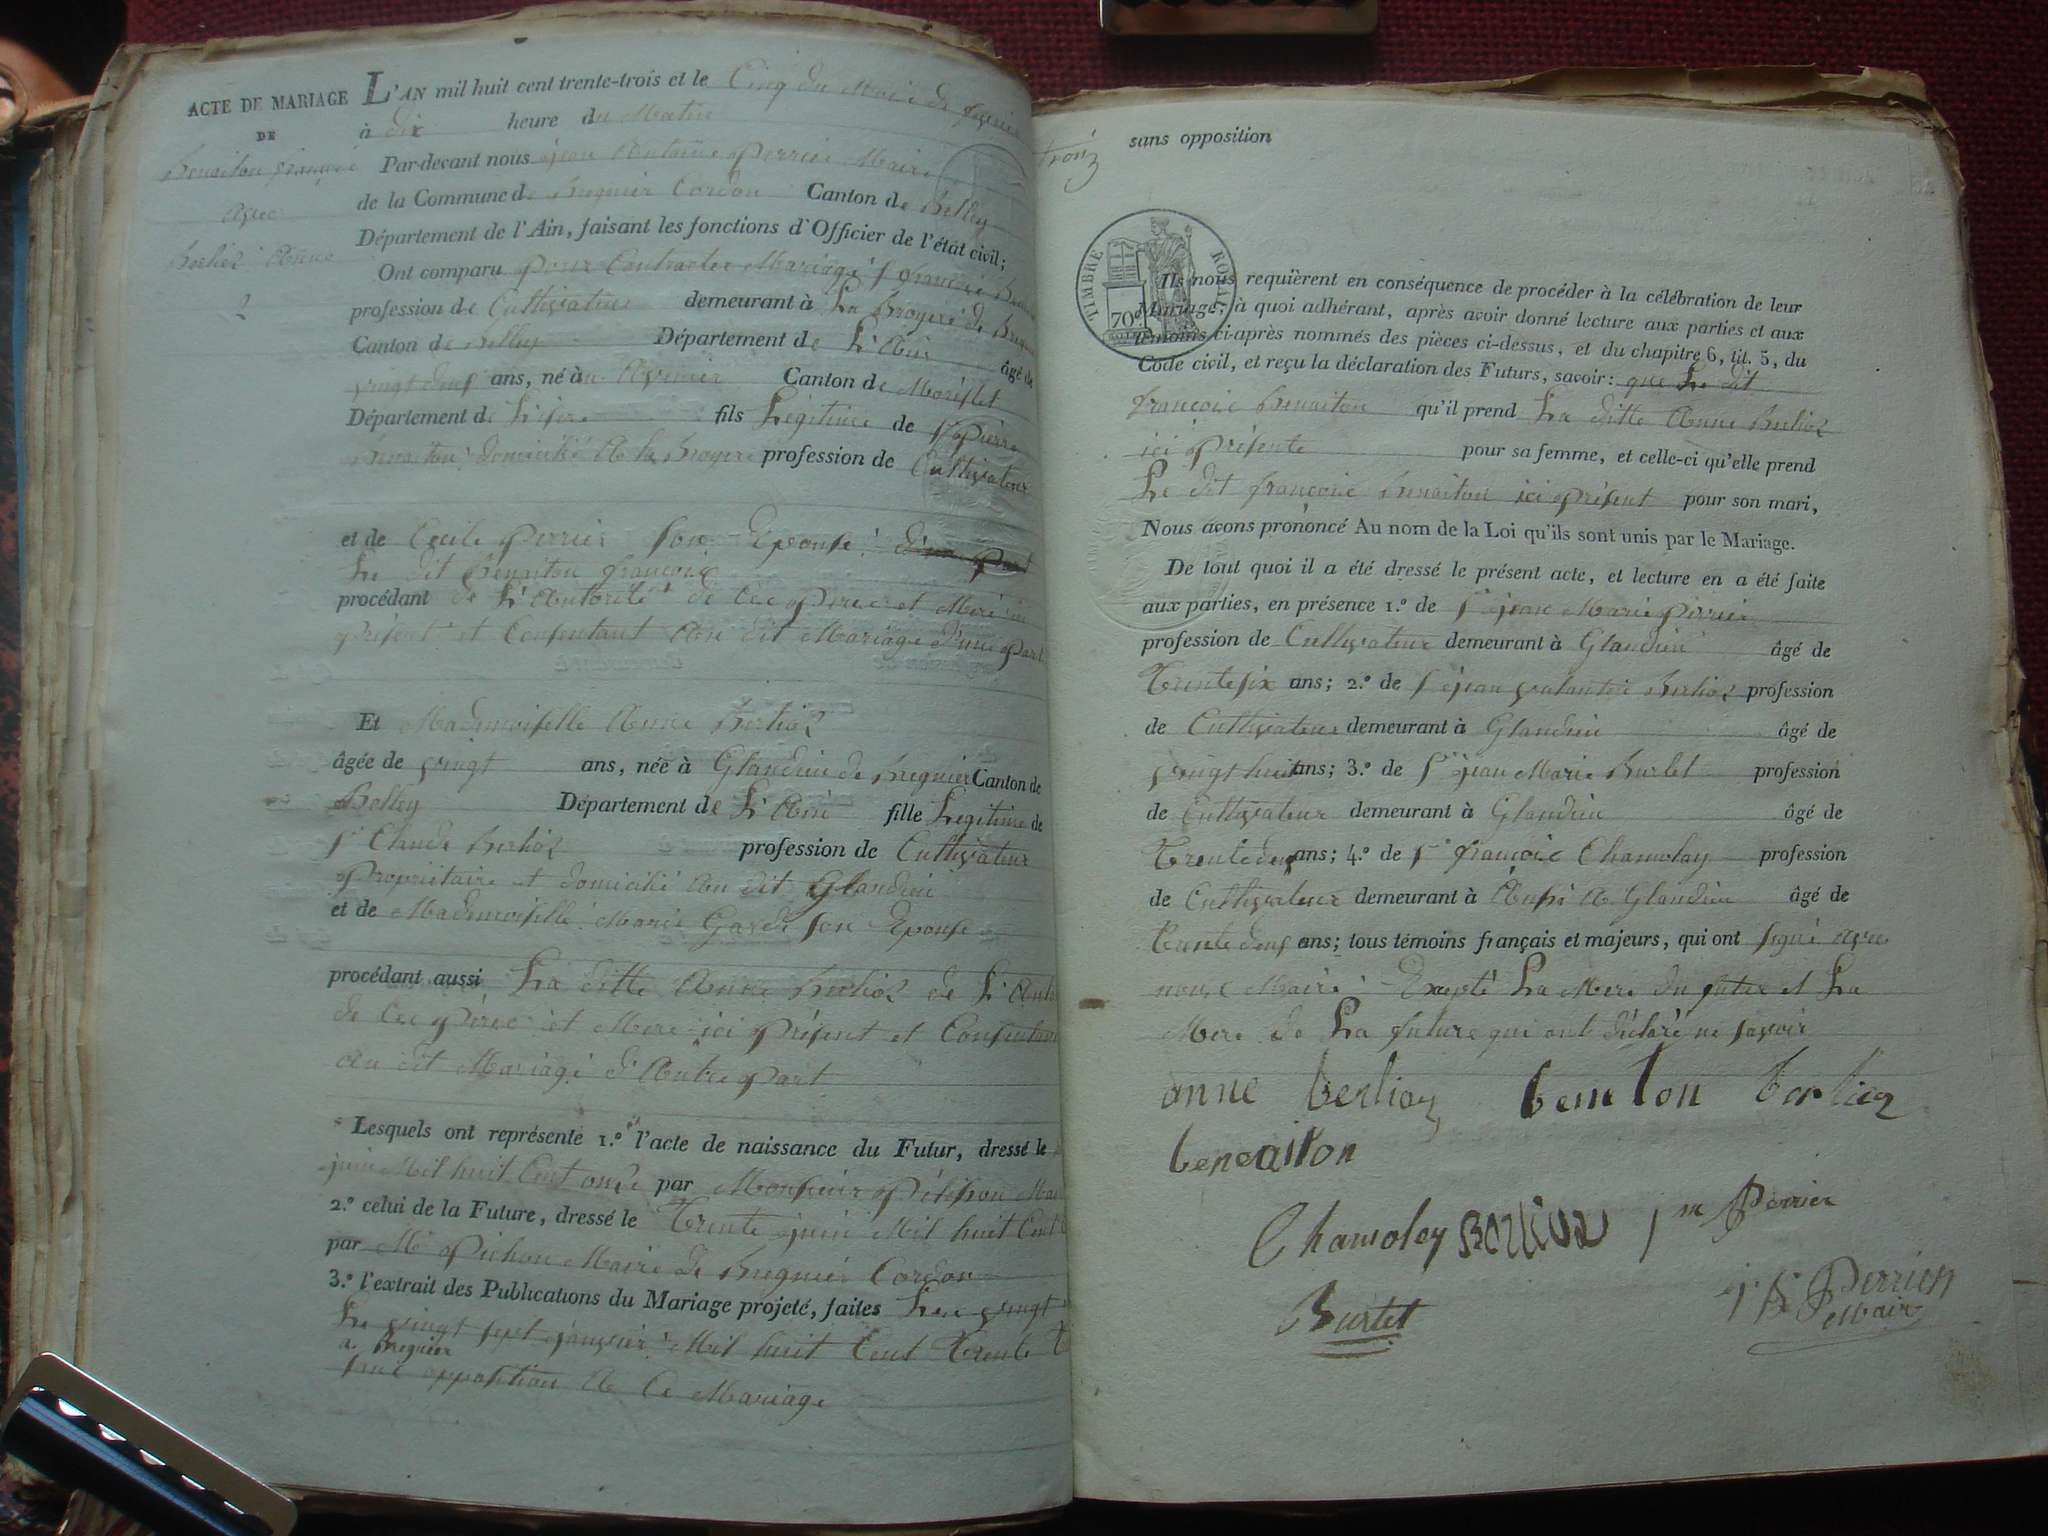 ACTE DE MARIAGE
DE
Benaiton françois
Avec
Berlioz Anne
2
L'AN mil huit cent trente-trois et le Cinq du Mois de fevrier
à dix heure du Matin
Par-devant nous jean Antoine Perrier Maire
de la Commune de Bregnier Cordon Canton de Belley
Département de l'Ain, faisant les fonctions d'Officier de l'état civil;
Ont comparu pour Contracter Mariage Sr françois
profession de Cultivateur demeurant à La Broyere de
Canton de Belley Département de L'Ain âgé de
vingt deux ans, né à Avenier Canton de Morestel
Département de L'isere fils Legitime de Sr Pierre
Benaiton domicilié A la Broyere profession de Cultivateur
et de Cecile Perrier Son Epouse d'une Part
Le dit Benaiton françois
procédant de L'Autorité de Ces Perer et Mere ici
présent et Consentant Au dit Mariage d'une part
Et Mademoiselle Anne Berlioz
âgée de vingt ans, née à Glandieu de Bregnier Canton de
Belley Département de L'Ain fille Legitime de
Sr Claude Berlioz profession de Cultivateur
Propriétaire et domicilié Au dit Glandieu
et de Mademoiselle Marie Garde Son Epouse
procédant aussi La ditte Anne Berlioz de L'Auto
de Ces Perec et Mere ici présent et Consentant
Au dit Mariage d'Autre part
Lesquels ont représenté 1.º l'acte de naissance du Futur, dressé le
juin Mil huit Cent onze par Monsieur
2.º celui de la Future, dressé le Trente juin Mil huit Cent
par Mr Pichon Maire de Bregnier Cordon
3.º l'extrait des Publications du Mariage projeté, faites Les vingt
Le vingt sept janvier Mil huit Cent Trente
a Bregnier
sans opposition A Ce Mariage
trois sans opposition
TIMBRE ROYAL
70
Ils nous requièrent en conséquence de procéder à la célébration de leur
Mariage; à quoi adhérant, après avoir donné lecture aux parties et aux
témoins ci-après nommés des pièces ci-dessus, et du chapitre 6, tit. 5, du
Code civil, et reçu la déclaration des Futurs, savoir: que Le dit
françois Benaiton qu'il prend La ditte Anne Berlioz
ici présente pour sa femme, et celle-ci qu'elle prend
Le dit françois Benaiton ici présent pour son mari,
Nous avons prononcé Au nom de la Loi qu'ils sont unis par le Mariage.
De tout quoi il a été dressé le présent acte, et lecture en a été faite
aux parties, en présence 1.º de Sr jean Marie Perrier
profession de Cultivateur demeurant à Glandieu âgé de
Trente six ans; 2.º de Sr jean valantin Berlioz profession
de Cultivateur demeurant à Glandieu âgé de
vingt huit ans; 3.º de Sr jean Marie Burlet profession
de Cultivateur demeurant à Glandieu âgé de
Trente deux ans; 4.º de Sr françois Chamolay profession
de Cultivateur demeurant à Aussi A Glandieu âgé de
Trente deux ans; tous témoins français et majeurs, qui ont signé avec
nous Maire Excepté La Mere du futur et La
Mere de La future qui ont déclaré ne savoir
anne berlioz benaiton berlioz
beneaiton
Chamoley Berlioz jm Perrier
Burlet
j. A. Perrier
Maire